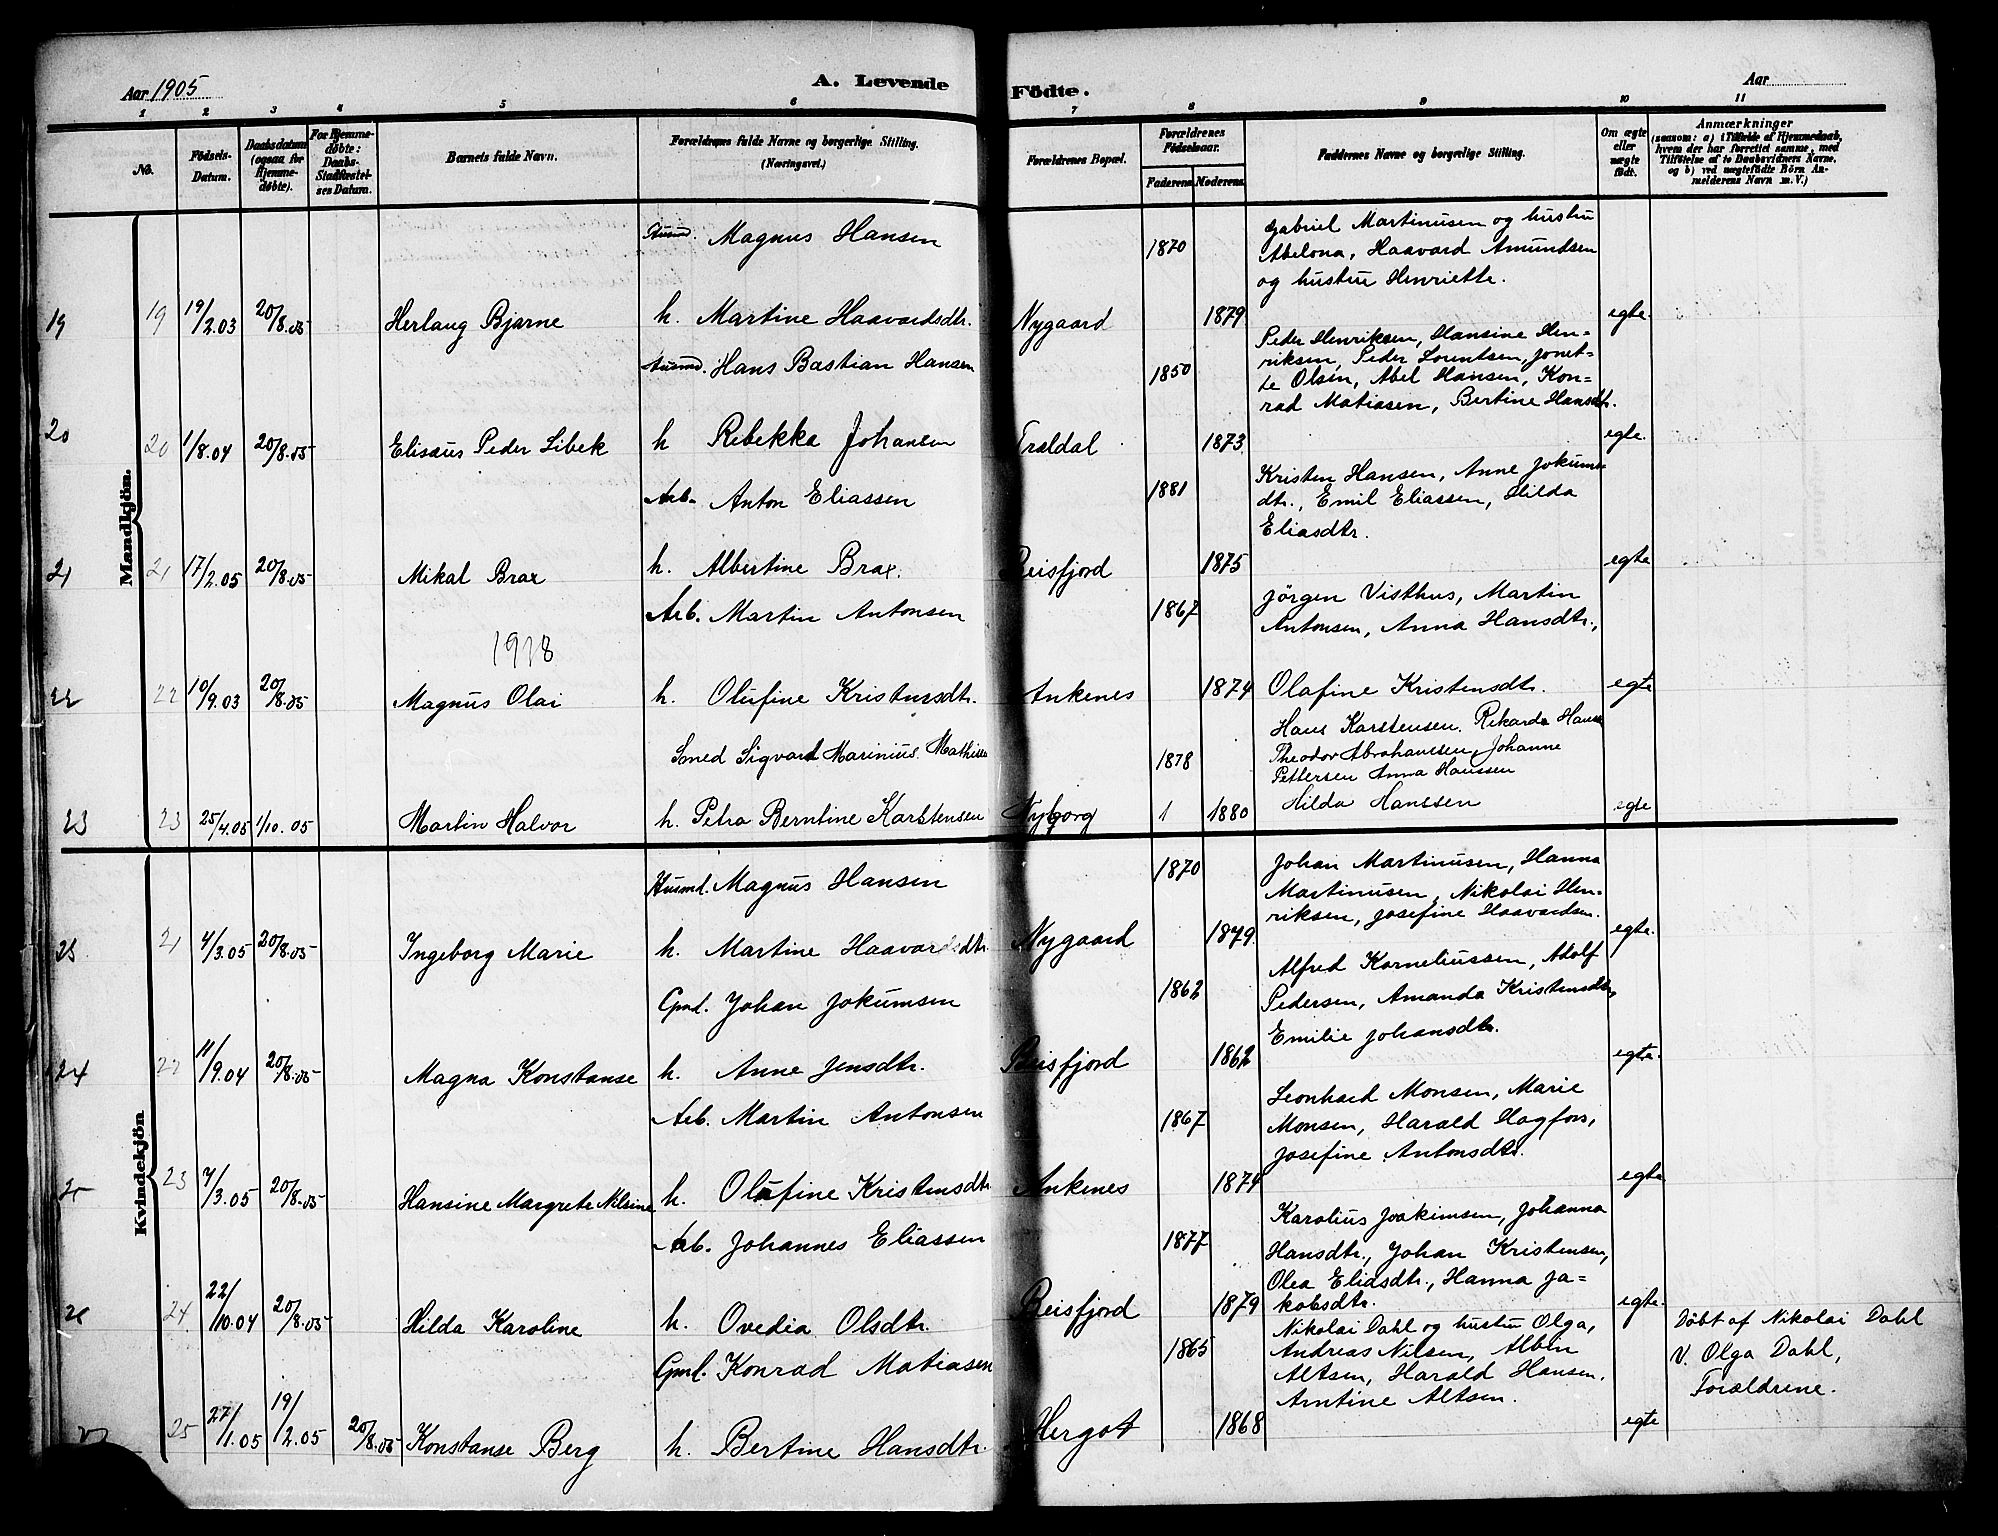 Aar 1905
A. Levende Födte.
Aar
1 2 3 4 5 6 7 8 9 10 11
No.
Födsels-
Datum.
Daabsdatum
(ogsaa for
Hjemme-
døbte).
For Hjemme-
døbte:
Daabs-
Stadfæstel-
ses Datum.
Barnets fulde Navn.
Forældrenes fulde Navne og borgerlige Stilling.
(Næringsvei.)
Forældrenes Bopæl.
Forældrenes
Födselsaar.
Faderens. Moderens.
Faddernes Navne og borgerlige Stilling.
Om ægte
eller
uægte
født.
Anmærkninger
(saasom: a) i Tilfælde af Hjemmedaab,
hvem der har forrettet samme, med
Tilføielse af to Daabsvidners Navne,
og b) ved uægtefødte Börn An-
melderens Navn m. V.)
Mandkjön.
Husmd. Magnus Hansen 1870
Gabriel Martinusen og hustru
Abelona, Haavard Amundsen
og hustru Henriette.
19 19 19/2.03 20/8.05 Herlaug Bjarne h. Martine Haavardsdtr. Nygaard 1879 egte.
Husmd. Hans Bastian Hansen 1850
Peder Henriksen, Hansine Hen-
riksen, Peder Lorentsen, Jonet-
te Olsen, Abel Hansen, Kon-
rad Matiasen, Bertine Hansdtr.
20 20 1/8.04 20/8.05 Elisæus Peder Libek h Rebekka Johansen Traldal 1873 egte.
Arb. Anton Eliassen 1881
Kristen Hansen, Anne Jokums
dtr., Emil Eliassen, Hilda
Eliasdtr.
21 21 17/2.05 20/8.05 Mikal Brax h. Albertine Brax. Beisfjord 1875 egte
Arb. Martin Antonsen 1867
Jörgen Visthus, Martin
Antonsen, Anna Hansdtr.,
1918
22 22 10/9.03 20/8.05 Magnus Olai h. Olufine Kristensdtr. Ankenes 1874 Olafine Kristensdtr. egte
Smed Sigvart Marinius Mathisen 1878
Hans Karstensen. Rikarda Hans
Theodor Abrahamsen, Johanne
Pettersen Anna Hanssen
Hilda Hanssen
23 23 25/4.05 1/10.05 Martin Halvor h. Petra Berntine Karstensen Nyborg 1 1880 egte
Kvindekjön
Husmd. Magnus Hansen 1870
Johan Martinusen, Hanna
Martinusen, Nikolai Hen-
riksen, Josefine Haavardsen.
23 21 4/3.05 20/8.05 Ingeborg Marie h. Martine Haavardsdtr. Nygaard 1879. egte.
Gmd. Johan Jokumsen 1862
Alfred Korneliussen, Adolf
Pedersen, Amanda Kristensdtr,
Emilie Johansdtr.
24 22 11/9.04 20/8.05 Magna Konstanse h. Anne Jensdtr. Beisfjord 1862 egte.
Arb. Martin Antonsen 1867
Leonhard Monsen, Marie
Monsen, Harald Hagfors,
Josefine Antonsdtr.
25 23 7/3.05 20/8.05 Hansine Margrete Nilsine h. Olufine Kristensdtr Ankenes 1874 egte
Arb. Johannes Eliassen 1877
Karolius Joakimsen, Johanna
Hansdtr., Johan Kristensen,
Olea Eliasdtr., Hanna Ja-
kobsdtr.
26 24 22/10.04 20/8.05 Hilda Karoline h. Ovedia Olsdtr. Beisfjord 1879 egte.
Gmd. Konrad Matiasen 1865
Nikolai Dahl og hustru Olga,
Andreas Nilsen, Albin
Altsen, Harald Hansen.
Arntine Altsen.
Döbt af Nikolai Dahl
V. Olga Dahl,
Forældrene.
27 25 27/1.05 19/2.05 20/8.05 Konstanse Berg h. Bertine Hansdtr. Hergot 1868 egte